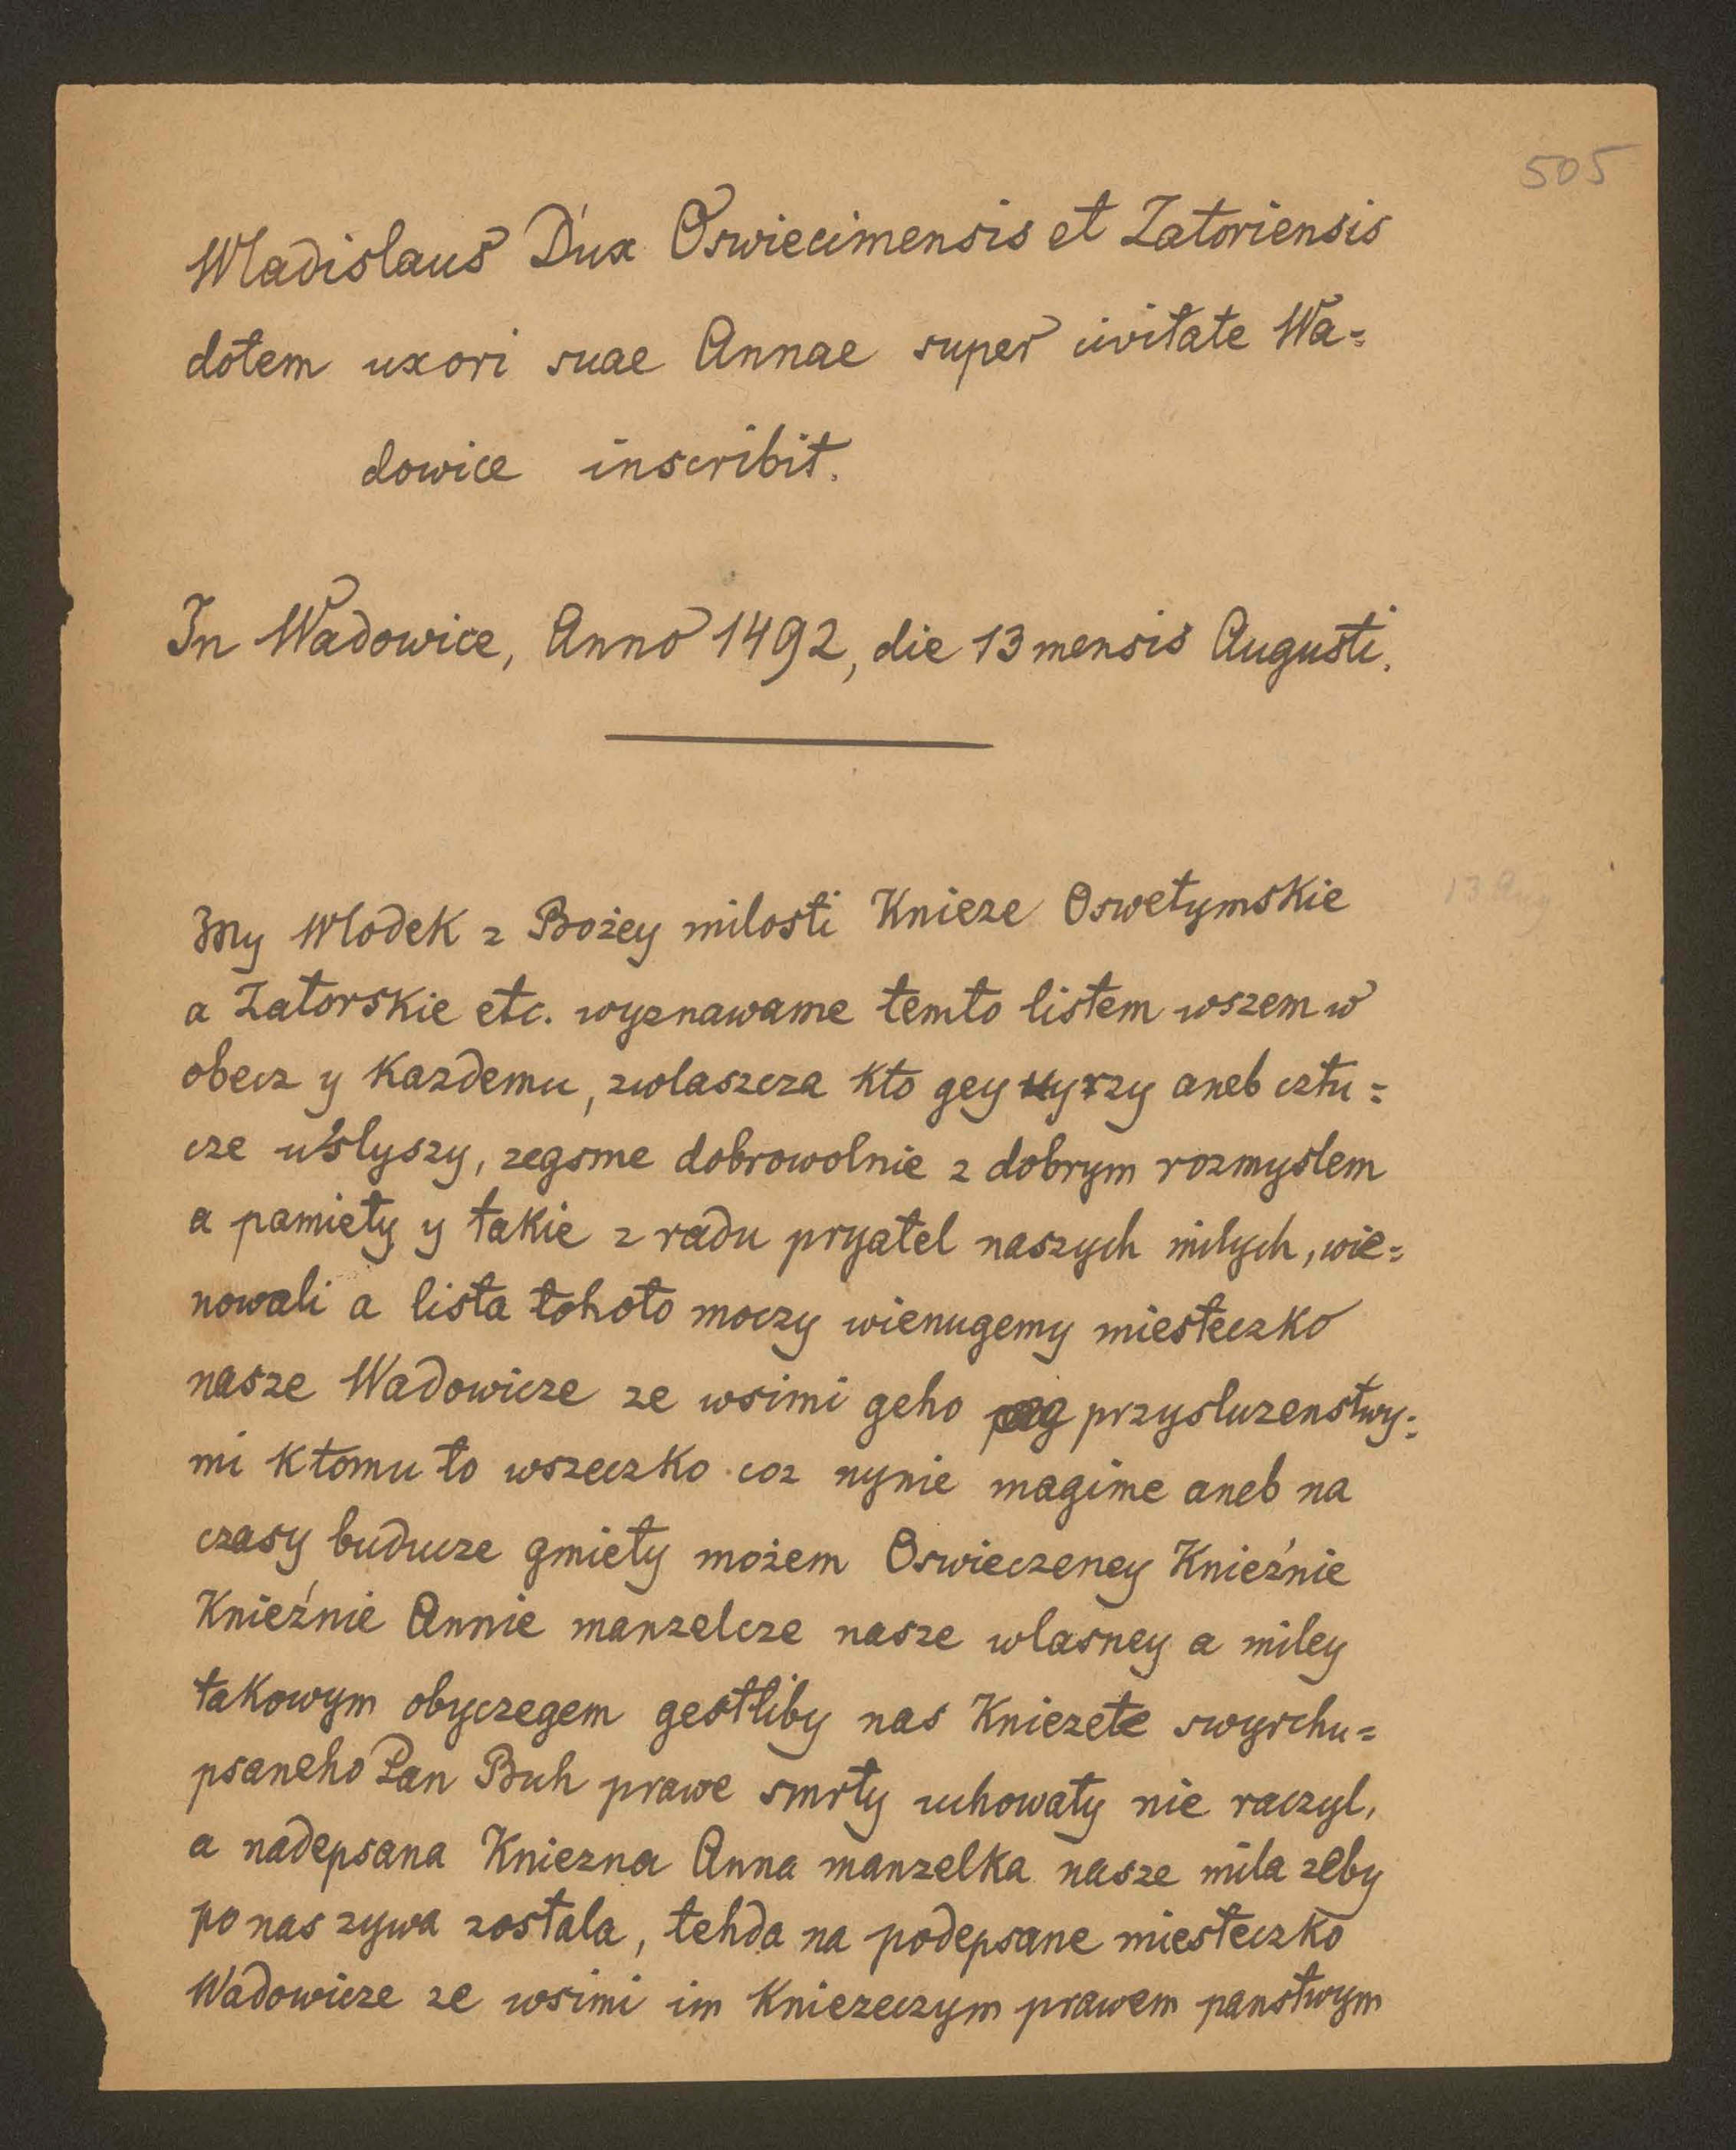 505
Wladislaus Dux Oswiecimensis et Zatoriensis
dotem uxori suae Annae super civitate Wa=
dowice inscribit.
In Wadowice, Anno 1492, die 13 mensis Augusti.
13 Aug
My Wlodek z Bożey milosti Knieze Oswetymskie
a Zatorskie etc. wyznawame temto listem wszem w
obecz y Kazdemu, zwlaszcza kto gey uyrzy aneb cztu=
cze uslyszy, zegsme dobrowolnie z dobrym rozmyslem
a pamiety y takie z radu pryatel naszych milych, wie=
nowali a lista tohoto moczy wienugemy miesteczko
nasze Wadowicze ze wsimi geho przysluzenstwy=
mi ktomu to wszeczko coz nynie magime aneb na
czasy buducze gmiety możem Oswieczeney Knieźnie
Knieźnie Annie manzelcze nasze wlasney a miley
takowym obyczegem gestliby nas Kniezete swyrchu=
psaneho Pan Buh prawe smrty uchowaty nie raczyl,
a nadepsana Kniezna Anna manzelka nasze mila zeby
po nas zywa zostala, tehda na podepsane miesteczko
Wadowicze ze wsimi im Kniezeczym prawem panstwym